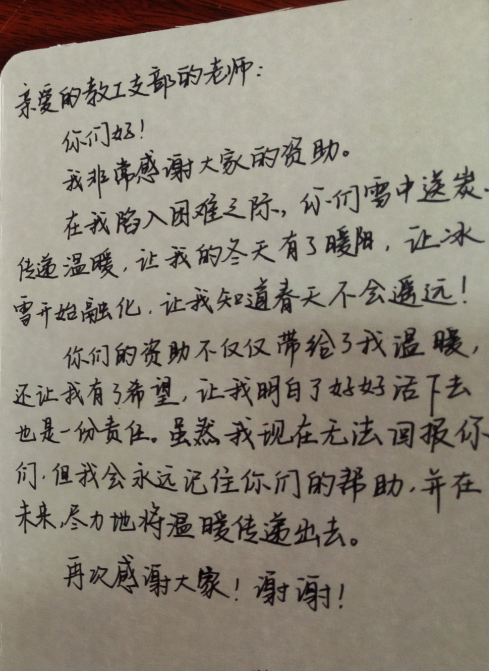 亲爱的教工支部的老师：
你们好！
我非常感谢大家的资助。
在我陷入困难之际，你们雪中送炭、
传递温暖，让我的冬天有了暖阳，让冰
雪开始融化，让我知道春天不会遥远！
你们的资助不仅仅带给了我温暖，
还让我有了希望，让我明白了好好活下去
也是一份责任。虽然我现在无法回报你
们，但我会永远记住你们的帮助，并在
未来，尽力地将温暖传递出去。
再次感谢大家！谢谢！